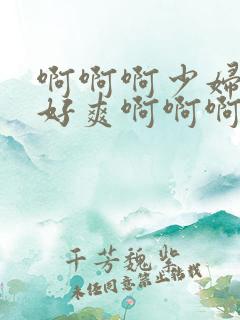 啊啊啊少婦
好爽啊啊啊
千芳魏紫
未经同意禁止转载